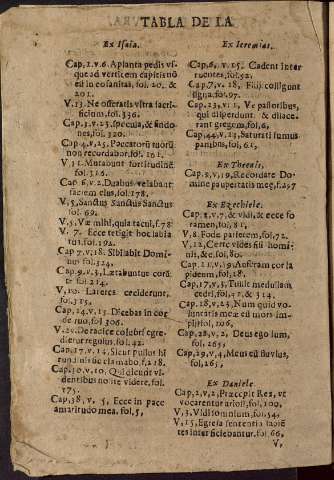 TABLA DE LA
Ex Isaia.
Cap,1.v.6. A planta pedis vs
que ad verticem capitis nō
est in eo sanitas, fol. 20. &
201.
V.13. Ne offeratis vltra sacri-
ficium, fol. 336.
Cap,3.v.23. specula, & sindo
nes, fol. 320.
fol. 161.
fol. 316.
Cap 6,v.2. Duabus velabant
faciem eius, fol. 178.
V,3, Sanctus Sanctus Sanctus
fol. 69.
V,5, Væ mihi, quia tacui, f.78
V. 7. Ecce tetigit hoc labia
tua, fol. 192.
Cap 7.v.18. Sibilabit Domi-
nus fol. 124,
Cap.9.v.3, Lætabuntur corā
te fol 214.
V,10. Lateres ceciderunt,
fol, 315,
Cap,14.v.13. Dicebas in cor
de tuo, fol 306.
egre-
dietur regulus, fol. 42.
Cap,17.v.14. Sicut pullus hi
rundinis sic clamabo, f.218.
Cap,30.v.10, Qui dicunt vi-
dentibus nolite videre, fol.
175.
Cap,38, v. 5, Ecce in pace
amaritudo mea. fol, 5,
Ex Ieremias.
Cap,6, v. 15. Cadent inter
ruentes, fol. 52.
Cap,7, v. 18, Filij colligunt
ligna, fol. 97.
Cap,23, v. 1, Ve pastoribus,
qui disperdunt, & dilace-
rant gregem, fol, 6,
Saturati sumus
panibus, fol, 61,
Ex Threnis,
Cap,3, v, 19, Recordare Do-
mine paupertatis meę, f.297
Ex Ezechiele.
Cap,2, v,7, & vidi, & ecce fo
ramen, fol, 81,
V,8, Fode parietem, fol, 72.
V,12, Certe vides fili homi-
nis, &c, fol, 80.
Auferam cor la
pideum, fol, 18.
Cap,17, v,3, Tulit medullam
cedri, fol, 52, & 314.
Num quid vo-
luntatis meæ est mors im-
pij, fol, 106,
Cap,28, v, 2, Deus ego sum,
fol, 265,
Cap,29, v,4, Meus est fluvius,
fol, 265,
Ex Daniele.
Cap,2, v,2, Præcepit Rex, vt
vocarentur arioli, fol, 100,
V,3, Vidi somnium, fol, 54,
V,15, Egressa sententia sapiē
tes interficiebantur, fol, 66.
V,